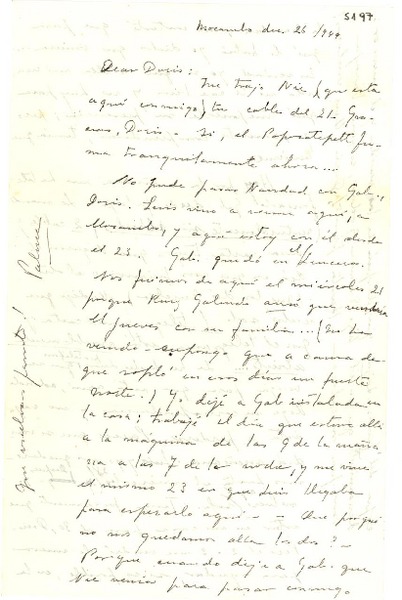 5197
Mocambo dic. 26 /949
Dear Doris:
Me trajo Nie (que está
aquí conmigo) tu cable del 21. Gra-
cias, Doris. Si, el Popocatepetl fu-
ma tranquilamente ahora...
No pude pasar Navidad con Gabi,
Doris. Luis vino a verme aquí, a
Mocambo, y aquí estoy con él desde
el 23. Gabi quedó en el
Nos fuimos de aquí el miércoles 21
porque Ruiz Galindo avisó que
el jueves con su familia... (No ha
venido - supongo que a causa de
que sopló en esos días un fuerte
norte.) Y dejé a Gabi instalada en
la casa; trabajé el día que estuve allá
a la máquina de las 9 de la maña-
na a las 7 de la noche, y me vine
el mismo 23 en que Luis llegaba
para esperarlo aquí - - Que porqué
no nos quedamos allá los dos? -
Porque cuando dije a Gabi que
Nie venía para pasar conmigo
Palma